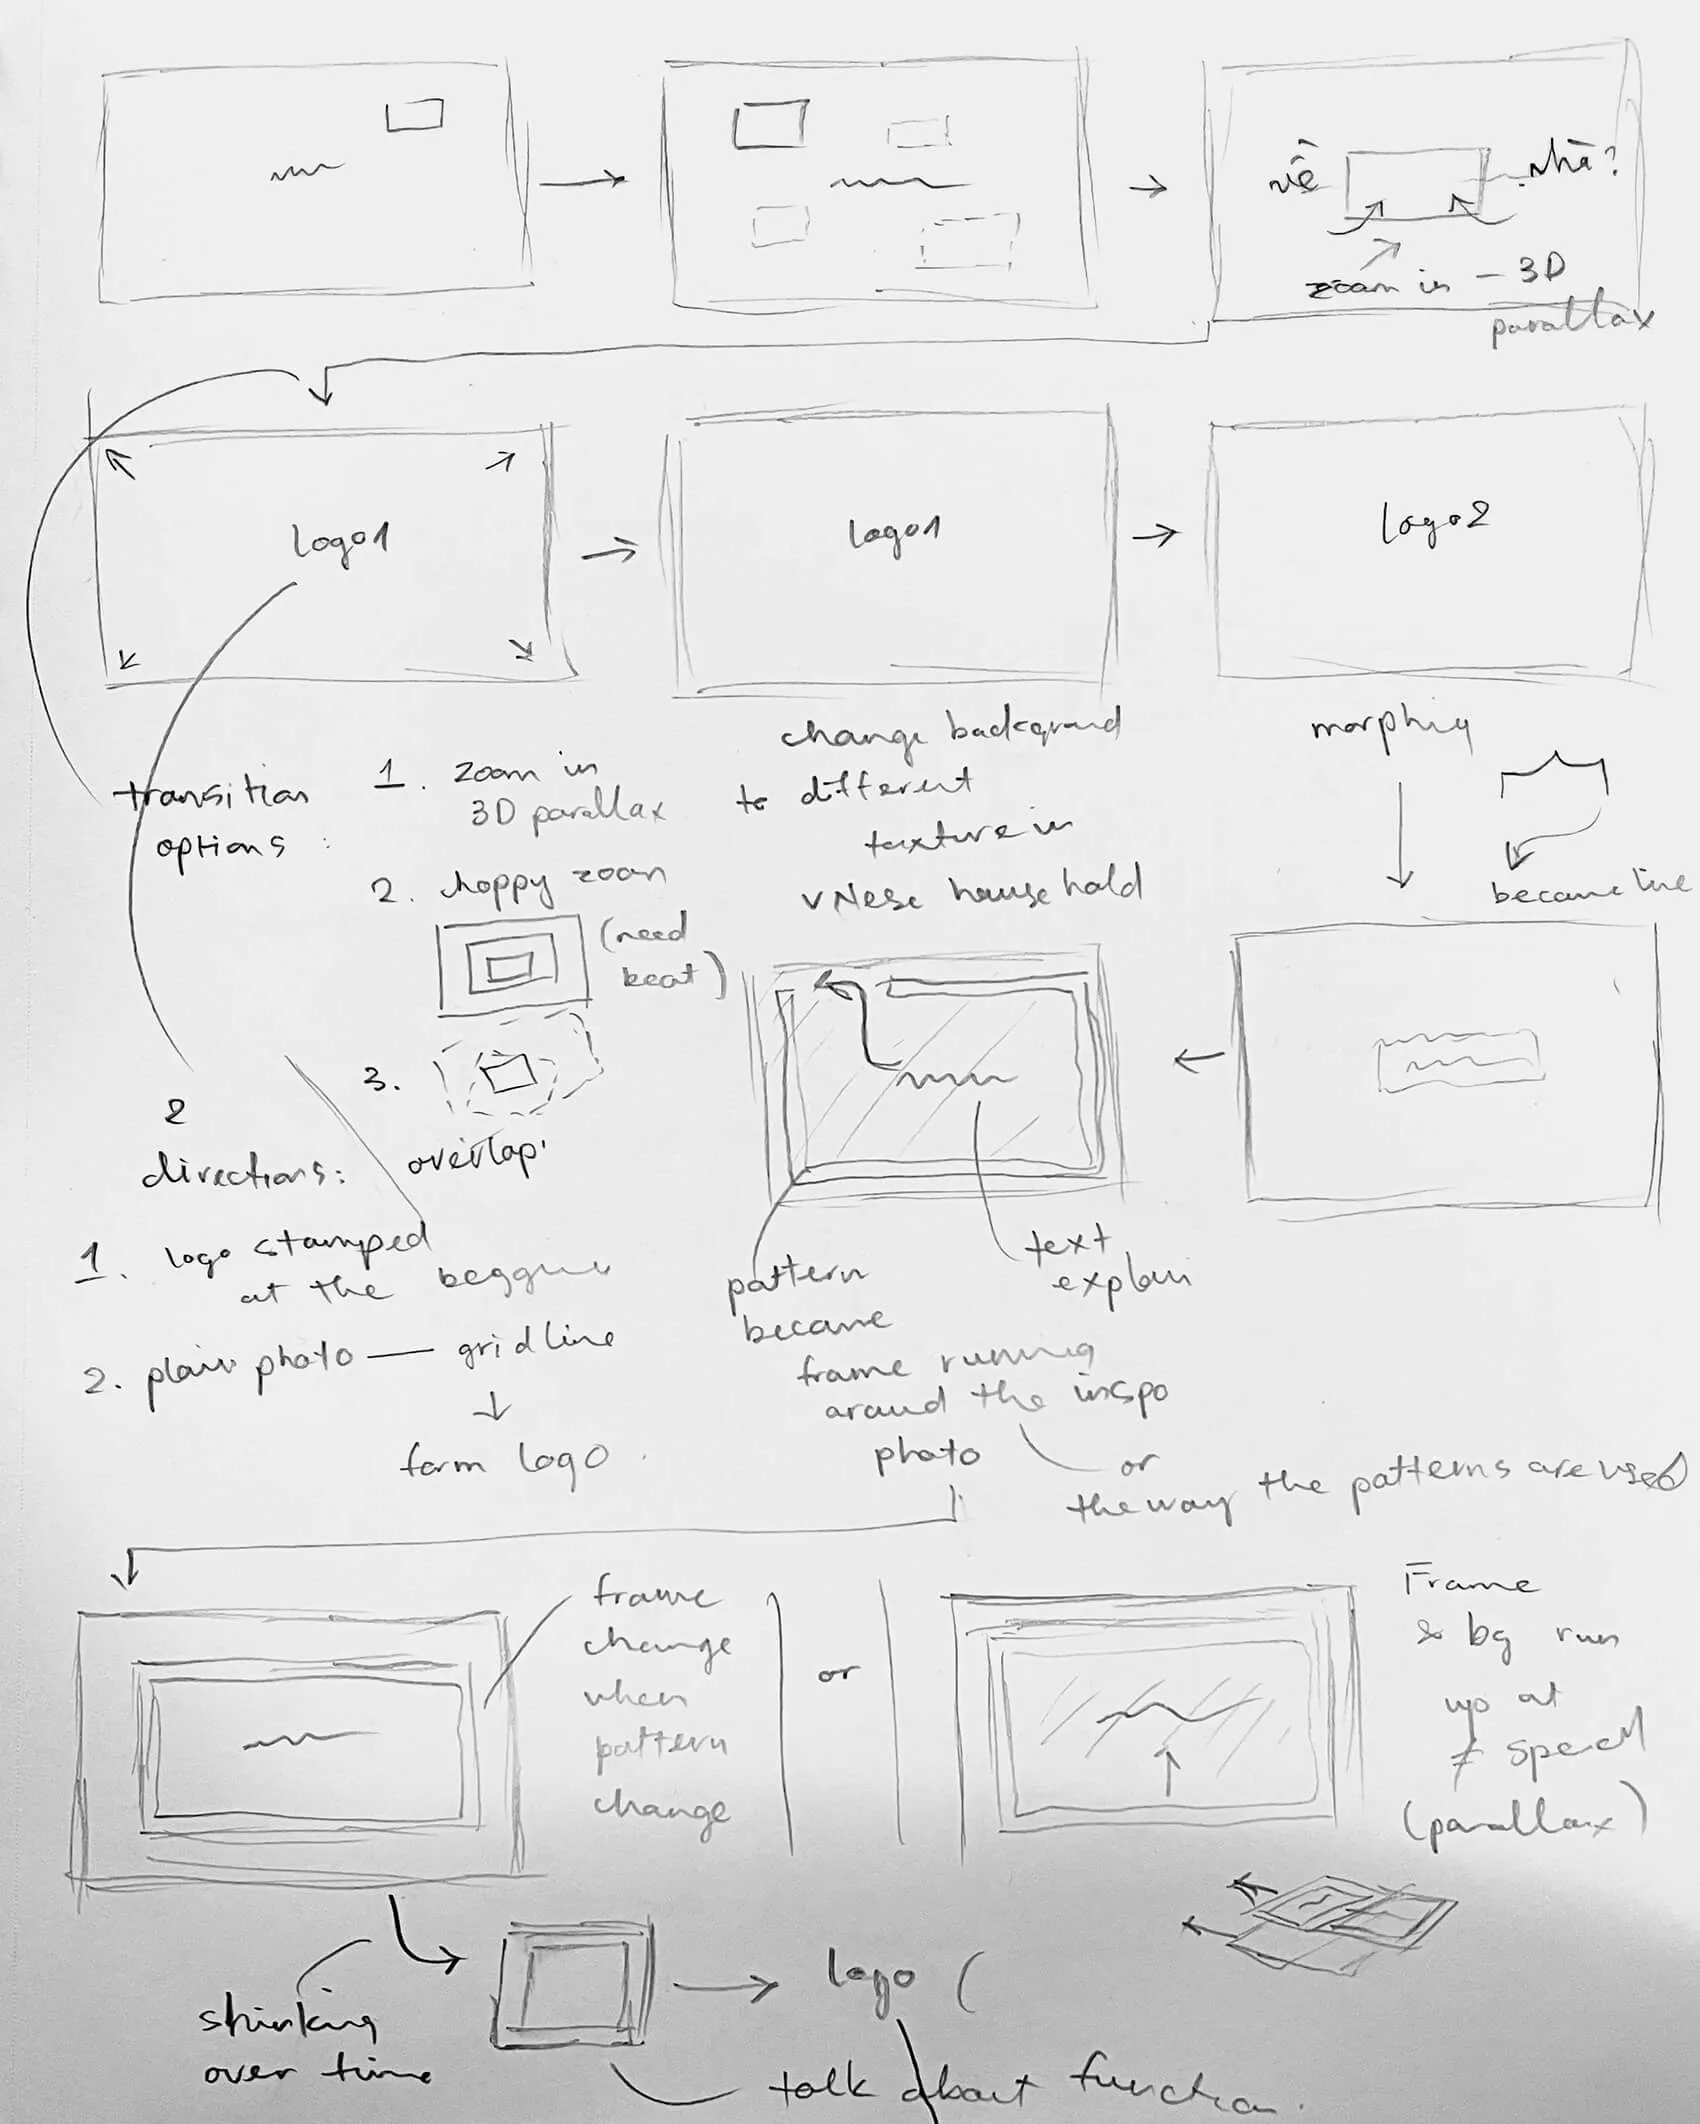 về
nhà?
zoom in - 3D
parallax
logo1
logo1
logo2
transition
options :
1. zoom in
3D parallax
2. choppy zoom
(need
beat)
3.
overlap
change backgrond
to different
texture in
VNese household
morphing
became line
2
directions:
1. logo stamped
at the
2. plain photo — gridline
↓
form logo
text
explain
pattern
became
frame running
around the inspo
photo
or
the way the patterns are used
frame
change
when
pattern
change
or
Frame
& bg run
up at
≠ speed
(parallax)
shinking
over time
logo (
talk about function.